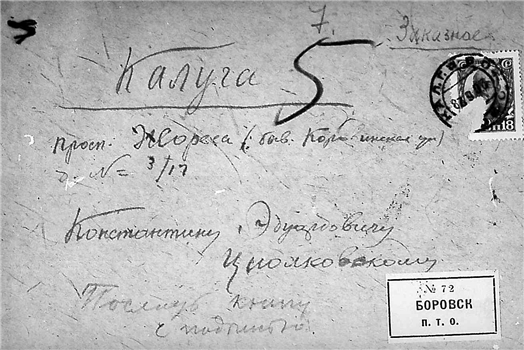 7. Заказное
Калуга 5
просп. Жореса (быв. Коровинская ул)
д. № 3/17
Константину Эдуардовичу
Циолковскому
Послать книгу
с подписью
№ 72
БОРОВСК
П. Т. О.
18